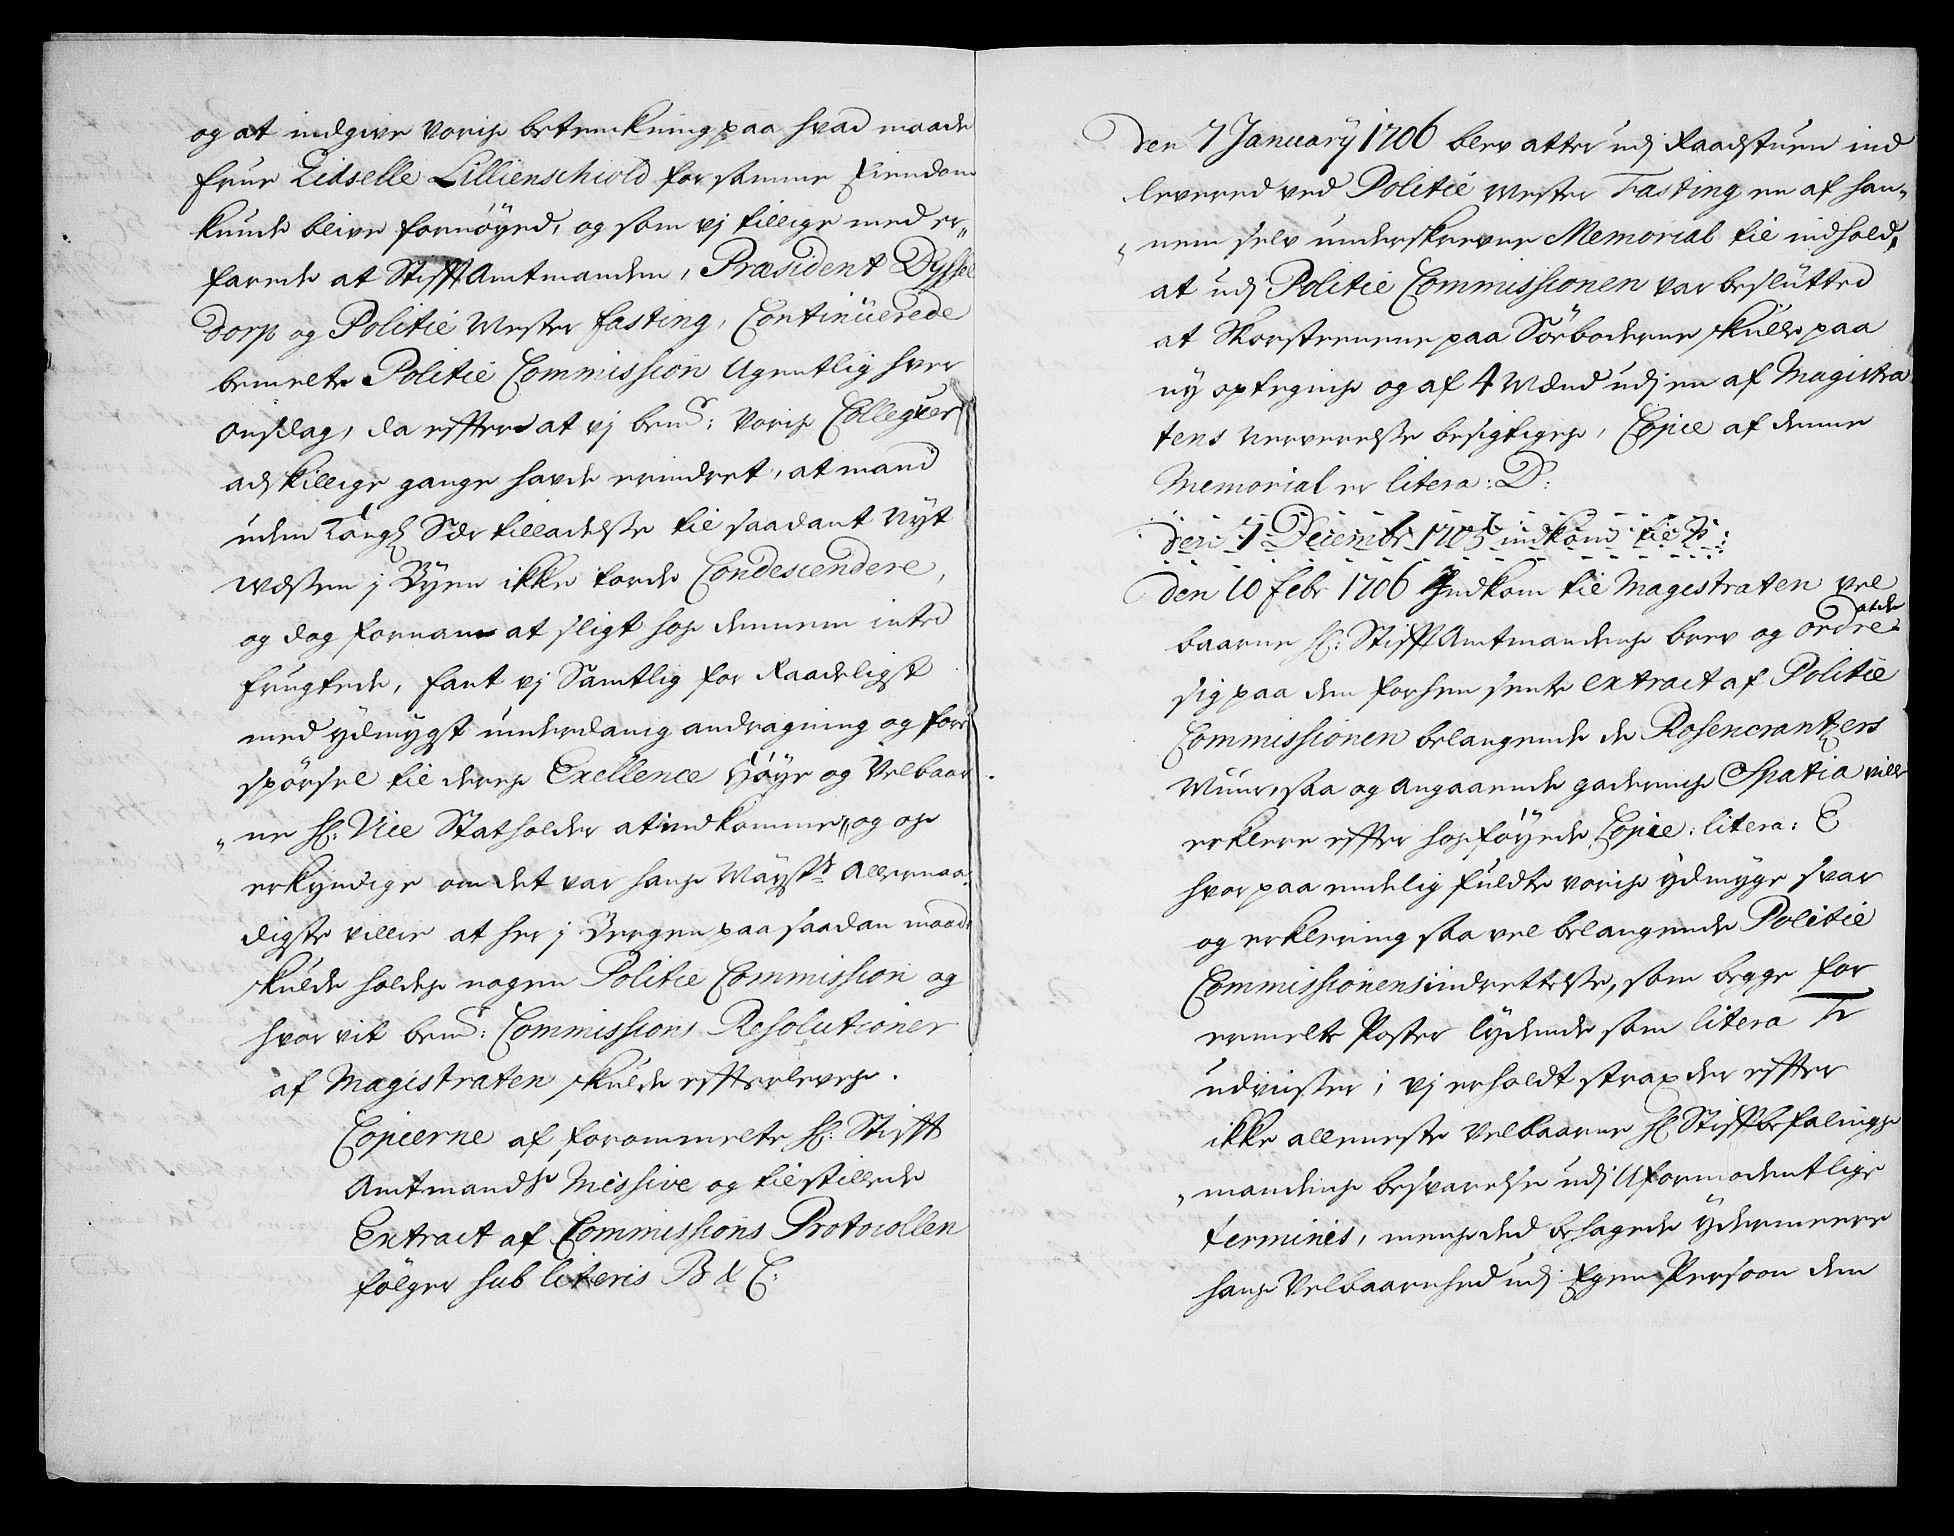 og at indgive vorise betenckning paa hvad maade
frue Zidselle Lillienschiold for samme Eiendom
kunde blive fornøyed, og som vj tillige med er„
farede at StifftAmtmanden, Præsident Dyssel
dorp og Politie Mester fasting, Continüerede
bemelte Politie Commission Ugentlig hver
Onsdag, da effterat vj bemd: vorise Collegver
adskillige gange havde erindret, at mand
uden Kongl Sær tilladelse til saadant Nyt
Wæsen j Byen ikke torde Condescendere,
og dog fornam at sligt hos dennem inted
frugtede, fant vj Samtlig for Raadeligst
med ydmygst underdanig andragning og fore
spørsel til deris Exellence Høye og Velbaar
„ne Hr: Vice Statholder at indkomme, og os
erkyndige om det var hans Mayst: Allernaa„
digste villie at her j Bergen paa saadan maade
skulde holdes nogen Politie Commission og
hvor vit bemd: Commissions Resolutioner
af Magistraten skulde effterleves.
Copierne af forommelte Hr: Stifft
Amtmands Missive og tilstillede
Extract af Commissions Protocollen
følger sub literis B & C:
Den 7 January 1706 blev atter udj Raadstuen ind
levered ved Politie Mester Fasting en af han„
„nem selv underskrevne Memorial til indhold,
at udj Politie Commissionen var beslütted
at Skorsteenene paa Söeboderne skulle paa
ny optegnes og af 4 Mænd udj en af Magistra
tens nerverelse besigtiges, Copie af denne
Memorial er litera: D:
Den 7 Decembr 1705 indkom til
Den 10 Febr 1706 Indkom til Magistraten vel
baarne Hr: StifftAmtmandens brev og Ordre at de
sig paa den forhen sente extract af Politie
Commissionen belangende de Rosencrantzers
Muur, saa og angaaende gadernis Spatia ville
erklere effter hosføyede Copie: litera: E
hvor paa endelig fuldte vorise ydmyge svar
og erklering saa vel belangende Politie
Commissionens indrettelse, som begge for
ermelte Poster lydende som litera F
udviiser, vj erholdt strax der effter
ikke alleeneste Velbaarne Hr Stifftbefalings
„mandens besvarelse udj Uformodentlige
terminis, mens ded behagede ydermeere
hans Velbaarenhed udj Egen Persoon den